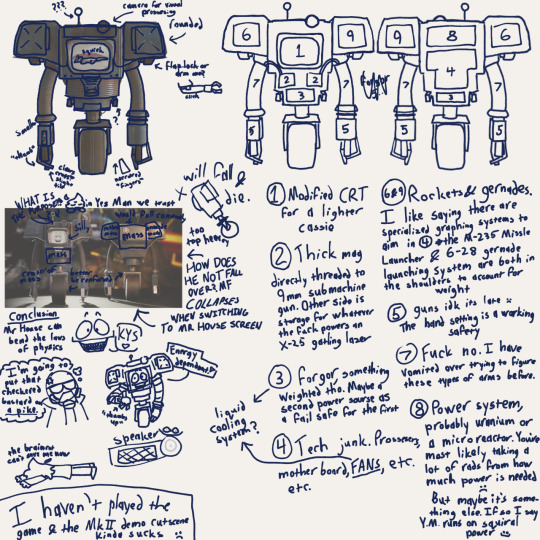 ???
camera for visual processing
rounded
squish
Flap lock or arm mod?
click
smaller
???
"wheels"
claws
narrowed "fingers"
6
9
1
2
2
3
7
7
5
5
9
8
6
4
3
7
7
5
5
WHAT IS THE PURPOSE?
in Yes Man we trust
silly
would Pull
mass
mass
Center of mass
better be reinforced
will fall & die.
too top heavy
HOW DOES
HE NOT FALL
OVER? MF
COLLAPSES
WHEN SWITCHING
TO MR HOUSE SCREEN
Conclusion
Mr House can
bend the laws
of physics
KYS
I'm going to
put that
checkered
bastard on
a pike.
Energy
dependant?
thumbs up
speaker
the brainrot
can't get me now
I haven't played the
game & the MkII demo cutscene
kinda sucks
1 Modified CRT
for a lighter
cassie
2 Thick mag
directly threaded to
9mm submachine
gun. Other side is
storage for whatever
the fuck powers an
X-25 gatling laser
3 Forgor something
weighted tho. Maybe a
second power source as
a fail safe for the first
liquid
cooling
system?
4 Tech junk. Processers,
mother board, FANS, etc.
etc.
6&9 Rockets & gernades.
I like saying there are
specialized graphing systems to
aim in 4 & the M-235 Missle
Launcher & G-28 gernade
launching system are both in
the shoulders to account for
weight
5 guns idk its late
The hand setting is a working
safety
7 Fuck no. I have
vomited over trying to figure
these types of arms before.
8 Power system,
probably urnium or
a micro reactor. You're
most likely taking a
lot of rads from how
much power is needed
But maybe it's some-
thing else. If so I say
Y.M. runs on squirrel
power